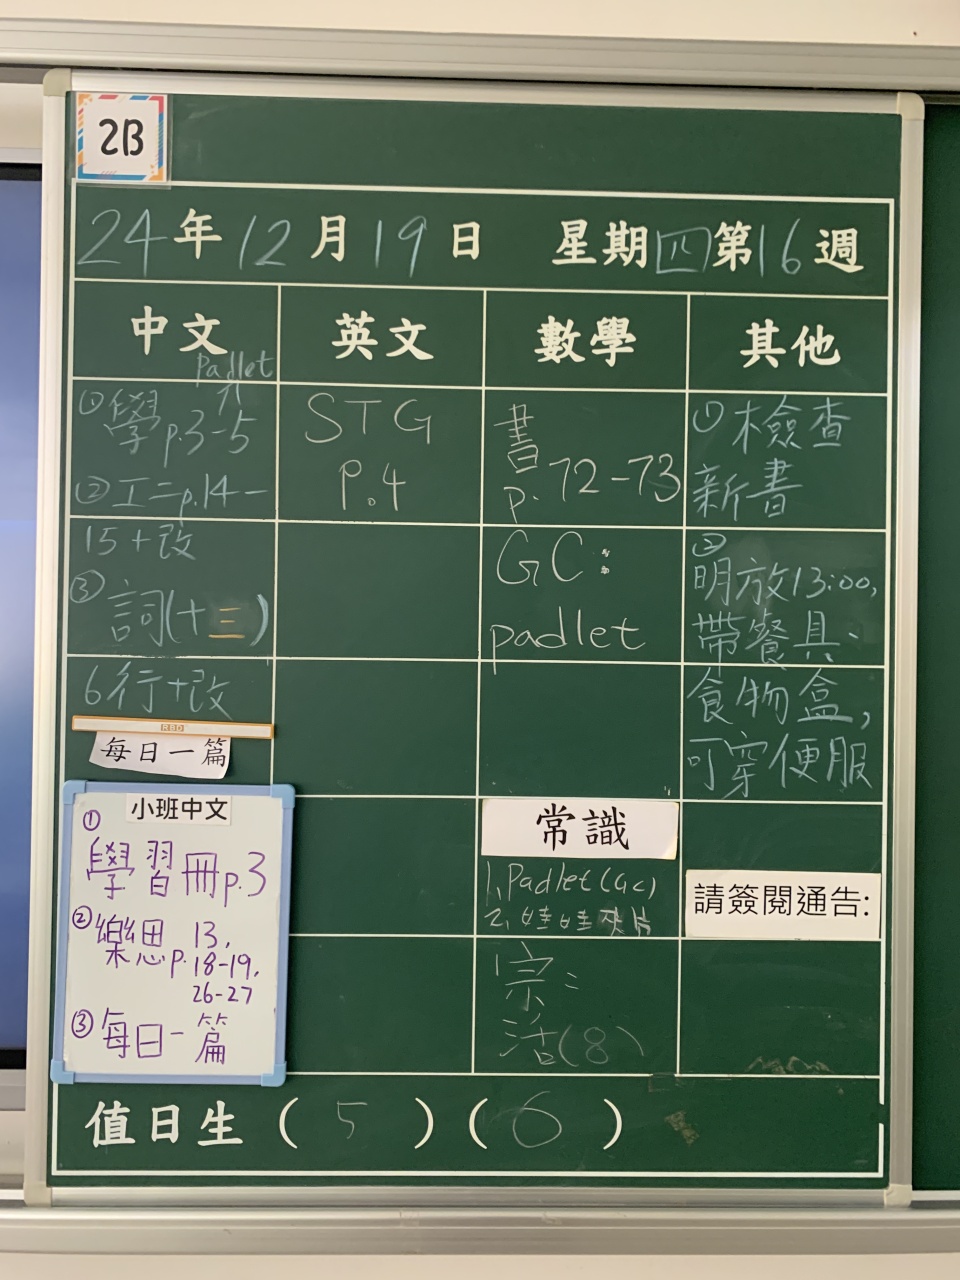 2B
24年12月19日 星期四第16週
中文
Padlet
①學p.3-5
②工二p.14-
15+改
③詞(十三)
6行+改
RBD
每日一篇
小班中文
①
學習冊p.3
②樂思p.13,
18-19,
26-27
③每日一篇
英文
STG
P.4
數學
書
p.72-73
GC:
padlet
常識
1. Padlet(GC)
2. 娃娃夾片
宗:
活(8)
其他
①檢查
新書
②
明放13:00,
帶餐具、
食物盒,
可穿便服
請簽閱通告:
值日生(5)(6)